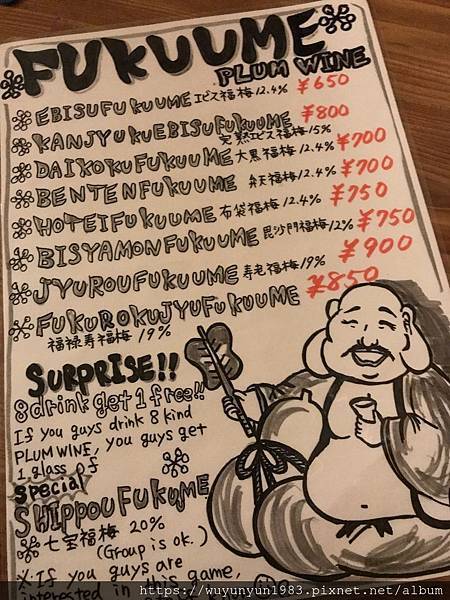 FUKUUME
PLUM WINE
EBISUFUKUUME エビス福梅 12.4% ¥650
KANJYUKUEBISUFUKUUME ¥800
完熟エビス福梅 15%
DAIKOKUFUKUUME 大黒福梅 12.4% ¥700
BENTENFUKUUME 弁天福梅 12.4% ¥700
HOTEIFUKUUME 布袋福梅 12.4% ¥750
BISYAMONFUKUUME 毘沙門福梅 12% ¥750
JYUROUFUKUUME 寿老福梅 19% ¥900
FUKUROKUJYUFUKUUME ¥850
福禄寿福梅 19%
SURPRISE!!
8drink get 1 free!!
If you guys drink 8 kind
PLUM WINE, you guys get
1 glass of
Special
SHIPPOUFUKUME
七宝福梅 20%
(Group is ok.)
※ If you guys are
interested in this game,
https://wuyunyun1983.pixnet.net/album